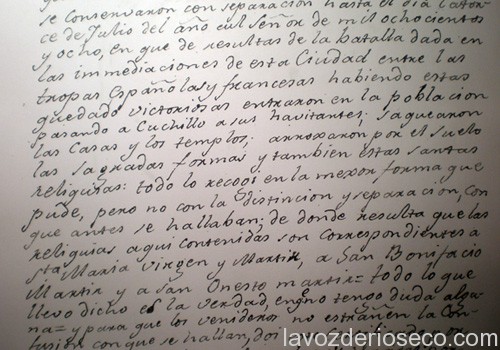 se conservaron con separacion hasta el dia cator-
ce de Julio del año del Señor de mil ochocientos
y ocho, en que de resultas de la batalla dada en
las immediaciones de esta Ciudad entre las
tropas Españolas y francesas habiendo estas
quedado victoriosas entraron en la poblacion
pasando a Cuchillo a sus havitantes; saquearon
las Casas y los templos; arroxaron por el suelo
las sagradas formas y tambien estas santas
religuias: todo lo recogi en la mexor forma que
pude, pero no con la distincion y separacion, con
que antes se hallaban; de donde resulta que las
reliquias aqui contenidas son correspondientes a
Sta. Maria virgen y Martir, a San Bonifacio
Martir y a San Onesto martir = todo lo que
llevo dicho es la verdad, en qe. no tengo duda algu-
na = y para que los venideros no estrañen la Con-
fusion con que se hallan, doi
lavozderioseco.com